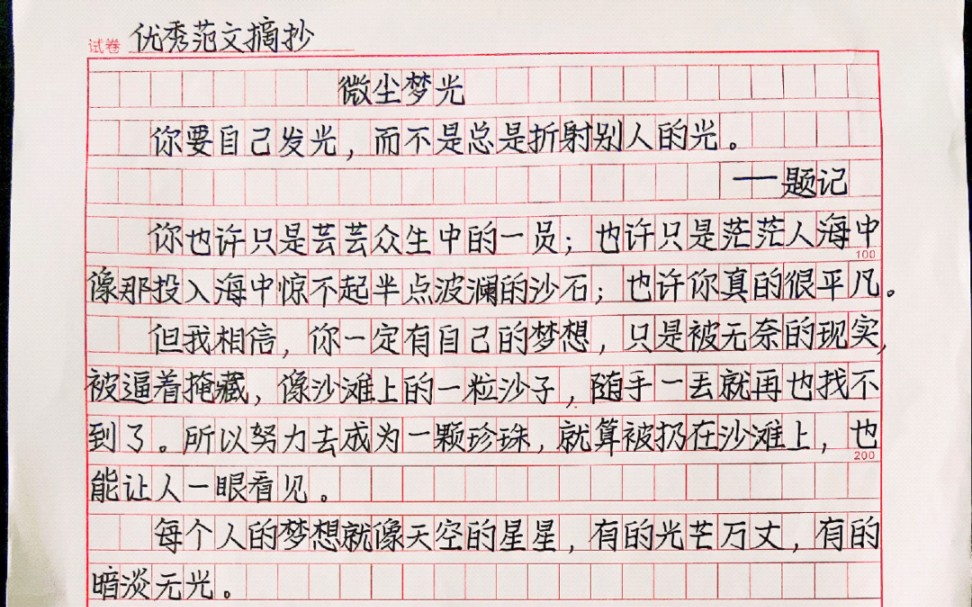 试卷 优秀范文摘抄
微尘梦光
你要自己发光，而不是总是折射别人的光。
——题记
你也许只是芸芸众生中的一员；也许只是茫茫人海中
100
像那投入海中惊不起半点波澜的沙石；也许你真的很平凡。
但我相信，你一定有自己的梦想，只是被无奈的现实，
被逼着掩藏，像沙滩上的一粒沙子，随手一丢就再也找不
到了。所以努力去成为一颗珍珠，就算被扔在沙滩上，也
200
能让人一眼看见。
每个人的梦想就像天空的星星，有的光芒万丈，有的
暗淡无光。